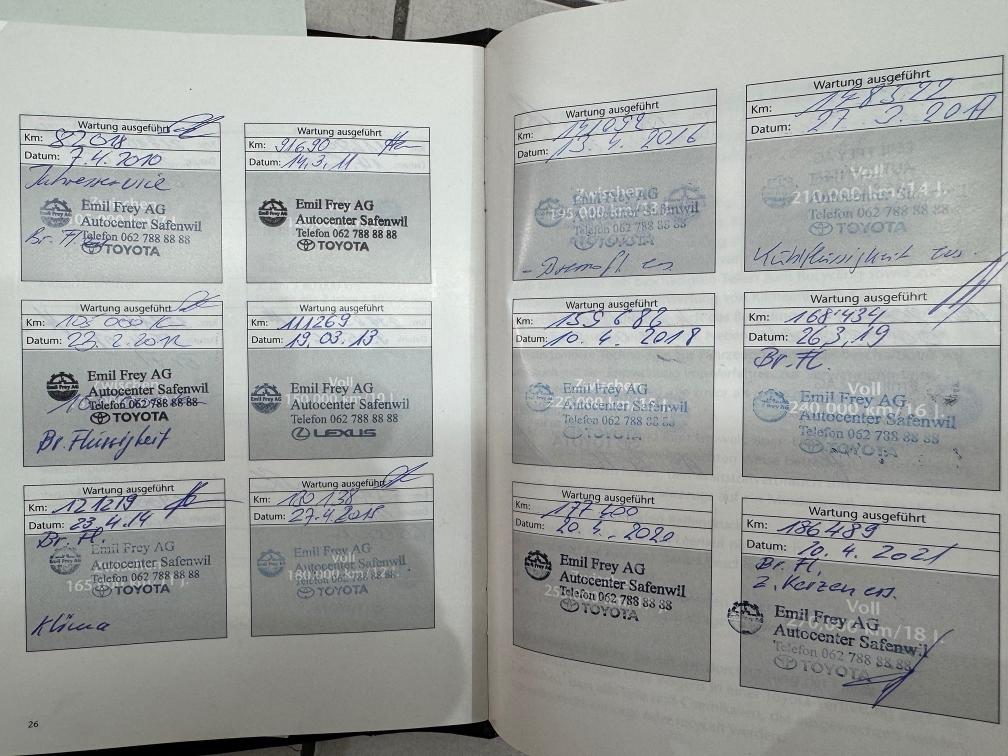 Wartung ausgeführt
Km: 82018
Datum: 7.4.2010
Jahresservice
Emil Frey AG
Autocenter Safenwil
Telefon 062 788 88 88
TOYOTA
Wartung ausgeführt
Km: 91690
Datum: 14.3.11
Emil Frey AG
Autocenter Safenwil
Telefon 062 788 88 88
TOYOTA
Wartung ausgeführt
Km:
Datum: 23.2.2012
Emil Frey AG
Autocenter Safenwil
Telefon 062 788 88 88
TOYOTA
Wartung ausgeführt
Km: 111269
Datum: 19.03.13
Voll
Emil Frey AG
Autocenter Safenwil
Telefon 062 788 88 88
LEXUS
Wartung ausgeführt
Km: 121219
Datum: 23.4.14
Br. Fl.
Emil Frey AG
Autocenter Safenwil
Telefon 062 788 88 88
TOYOTA
Klima
Wartung ausgeführt
Km: 130138
Datum: 27.4.2015
Emil Frey AG
Voll
Autocenter Safenwil
180.000 km/12 J.
Telefon 062 788 88 88
TOYOTA
26
Wartung ausgeführt
Km:
Datum: 13.4.2016
Zwischen
Emil Frey AG
195.000 km/
Autocenter Safenwil
Telefon 062 788 88 88
TOYOTA
Wartung ausgeführt
Km: 148522
Datum: 27.3.2017
Voll
210.000 km/14 J.
Telefon 062 788 88 88
TOYOTA
Kühlflüssigkeit ers.
Wartung ausgeführt
Km: 159682
Datum: 10.4.2018
Zwischen
Emil Frey AG
Autocenter Safenwil
Telefon 062 788 88 88
TOYOTA
Wartung ausgeführt
Km: 168'434
Datum: 26.3.19
Br. Fl.
Voll
Emil Frey AG
240.000 km/16 J.
Autocenter Safenwil
Telefon 062 788 88 88
TOYOTA
Wartung ausgeführt
Km: 177400
Datum: 20.4.2020
Emil Frey AG
Autocenter Safenwil
Telefon 062 788 88 88
TOYOTA
Wartung ausgeführt
Km: 186489
Datum: 10.4.2021
Br. Fl.
Z. Kerzen ers.
Voll
Emil Frey AG
270.000 km/18 J.
Autocenter Safenwil
Telefon 062 788 88 88
TOYOTA